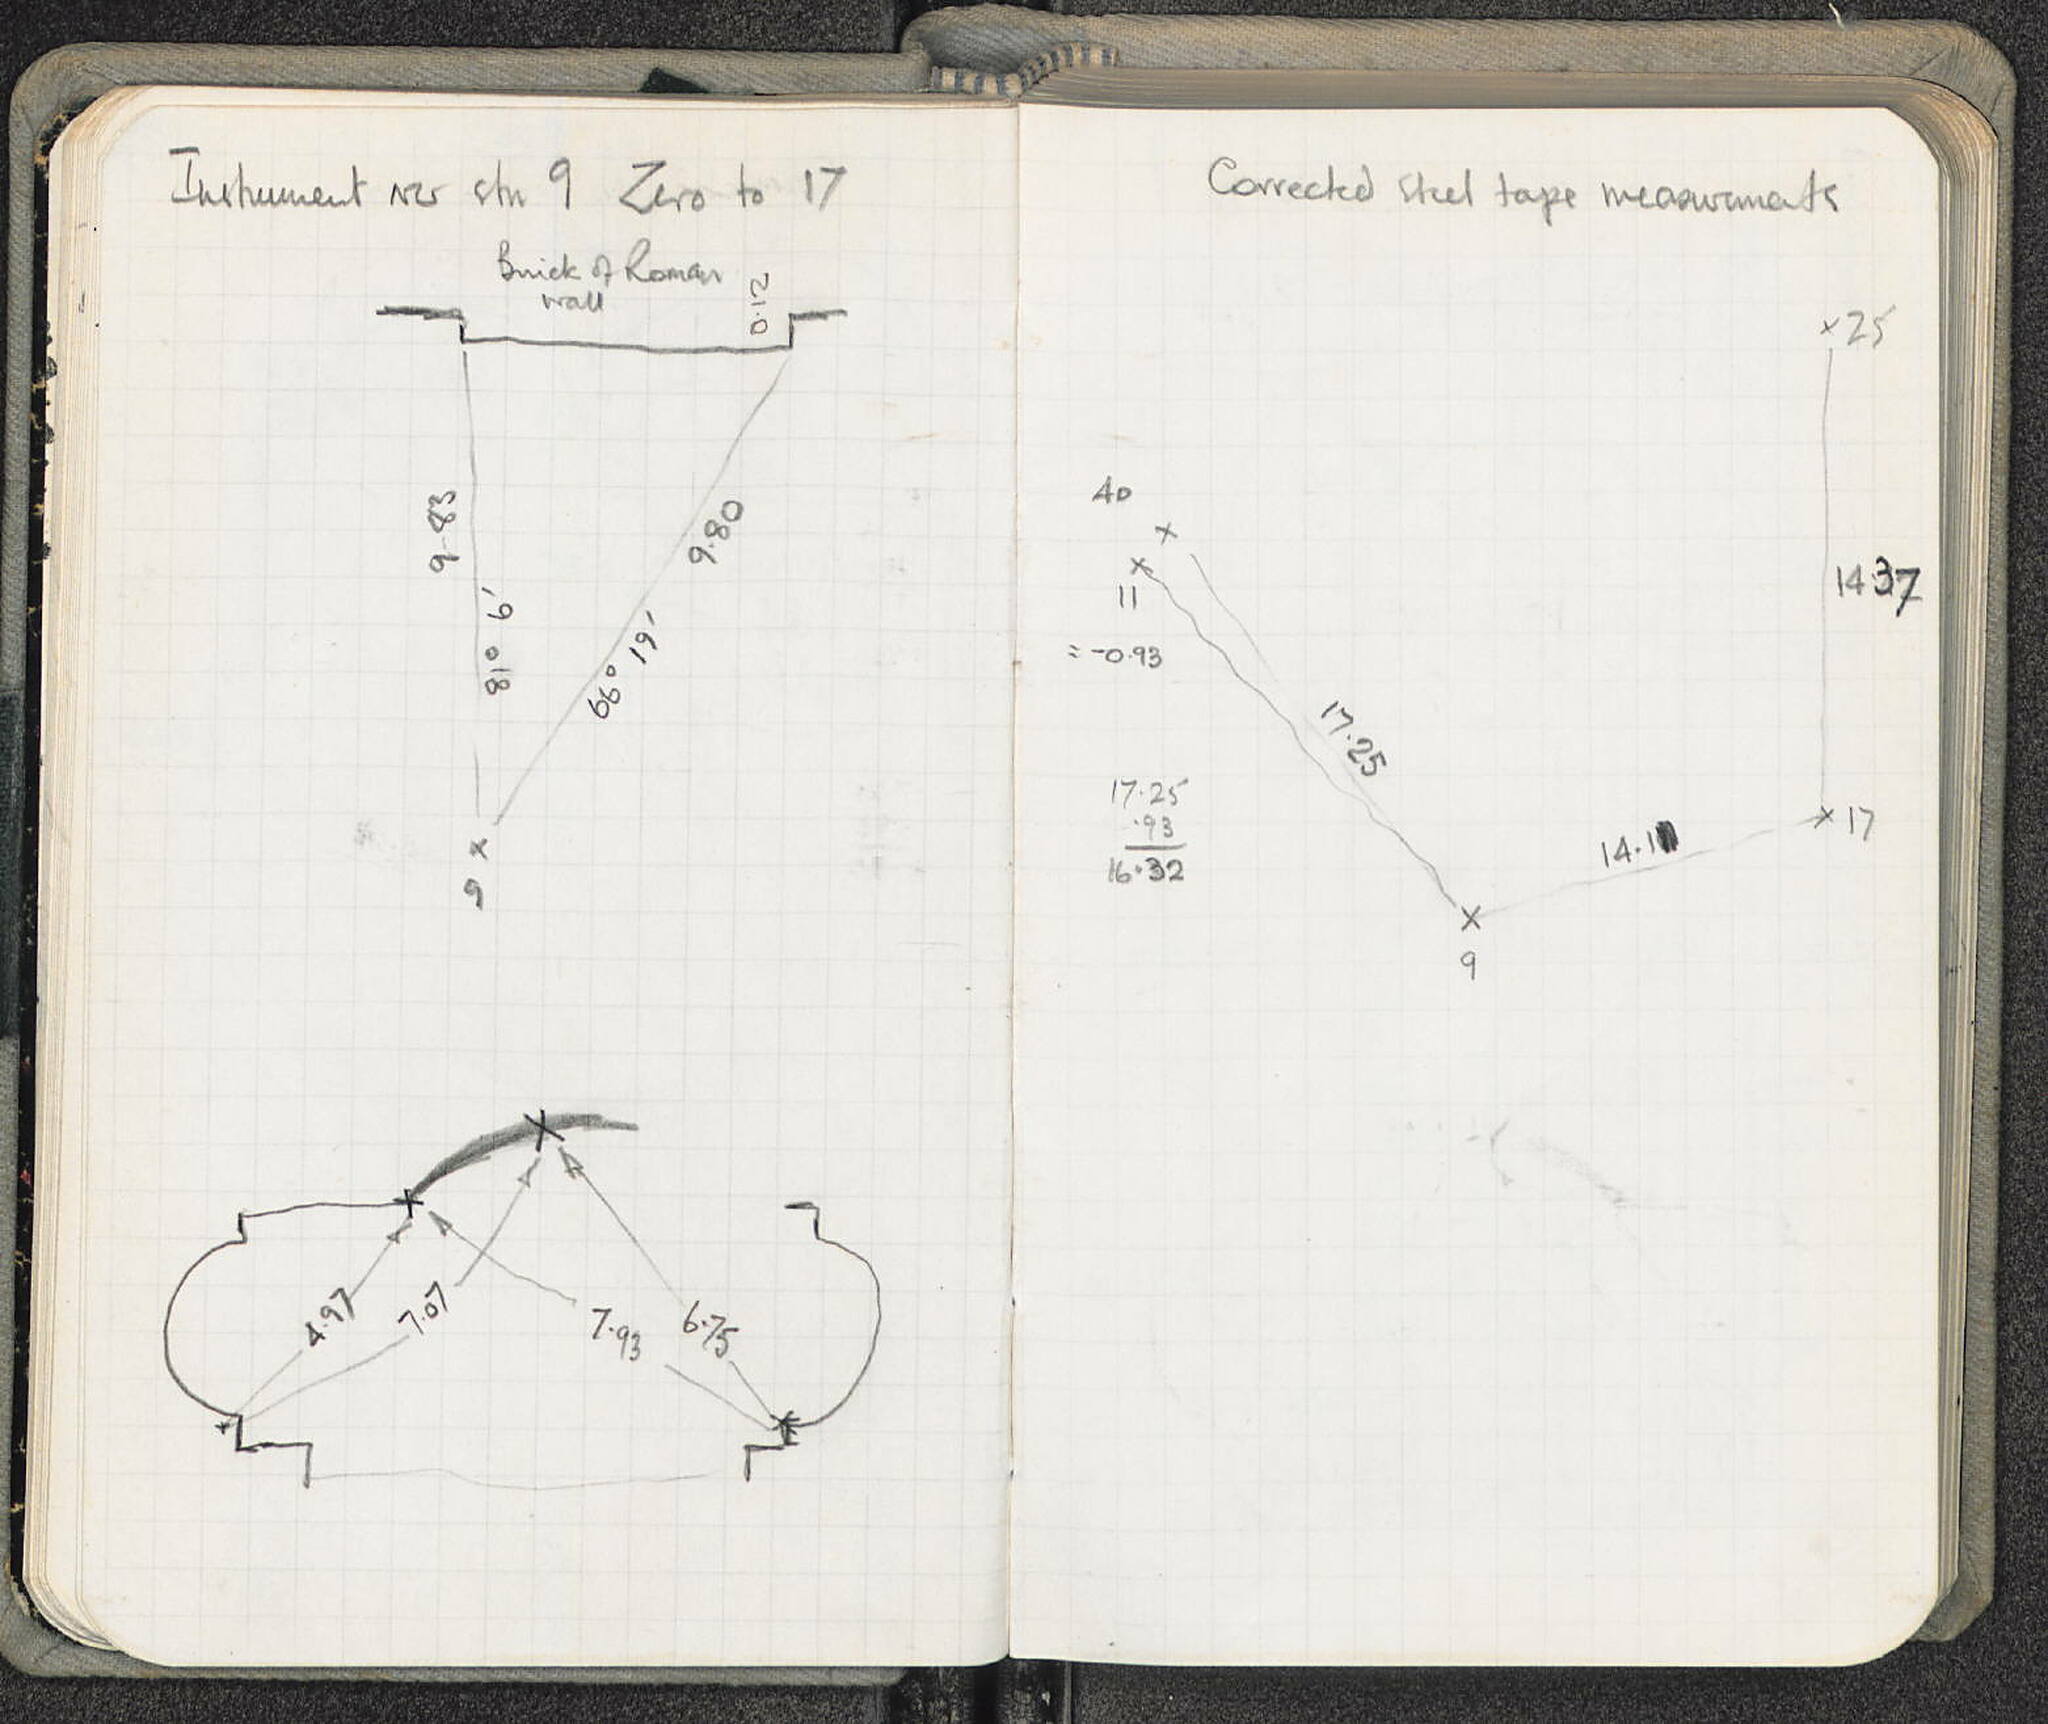 Instrument over stn 9 Zero to 17
Brick of Roman
wall
0.12
9.83
9.80
81° 6'
66° 19'
9
4.97
7.07
7.93
6.75
Corrected steel tape measurements
25
40
11
= -0.93
14.37
17.25
17.25
.93
16.32
17
9